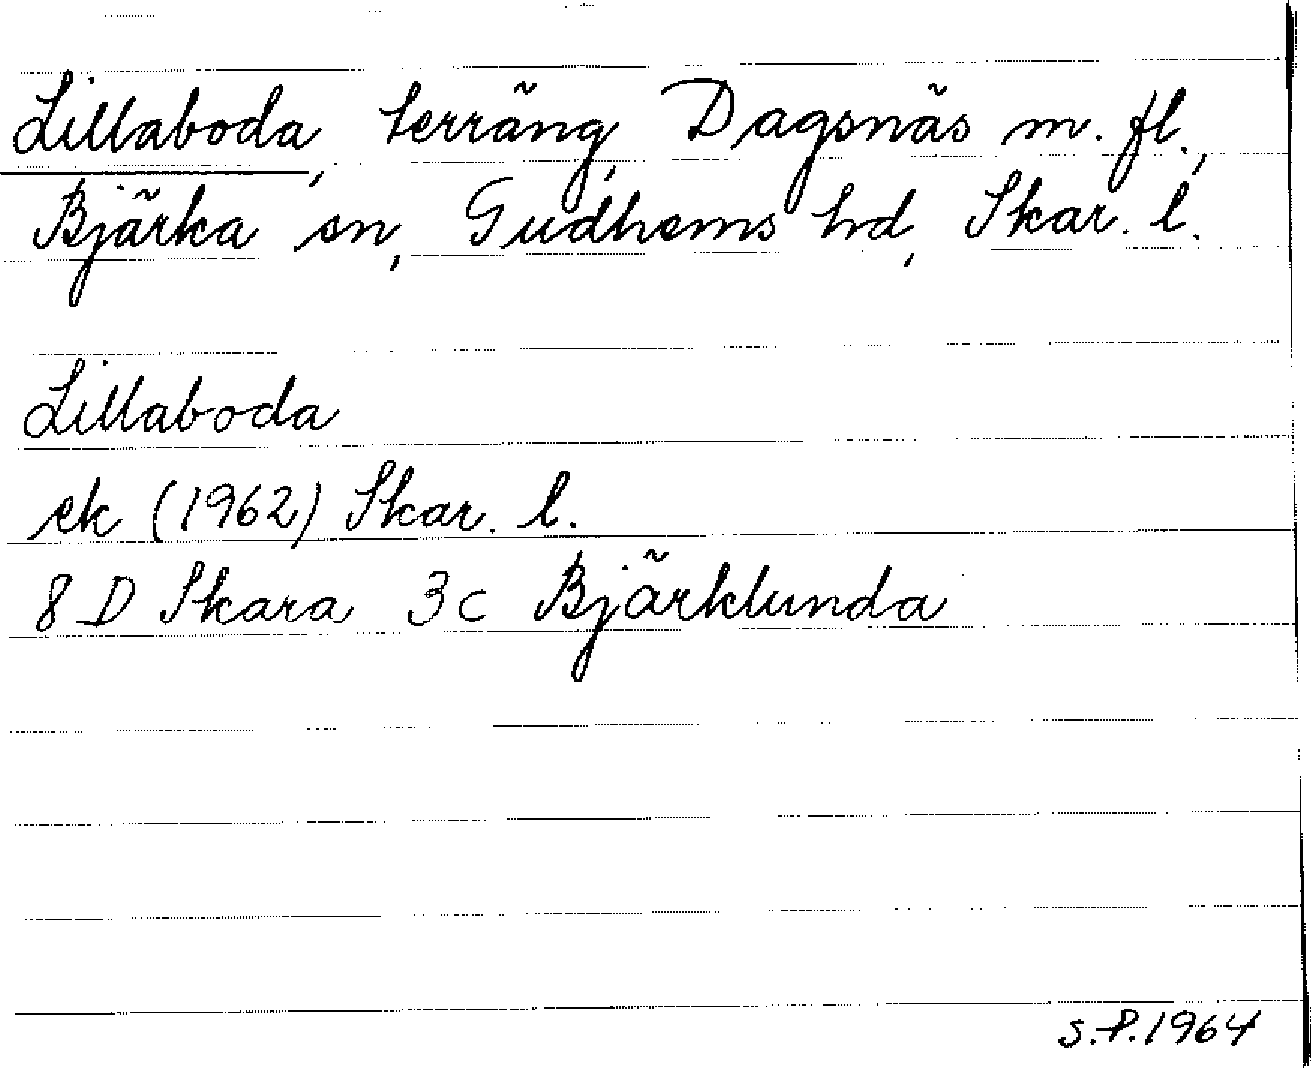 Lillaboda, terräng, Dagsnäs m. fl.,
Bjärka sn, Gudhems hd, Skar. l.
Lillaboda
ek (1962) Skar. l.
8 D Skara 3c Bjärklunda
S.P. 1964